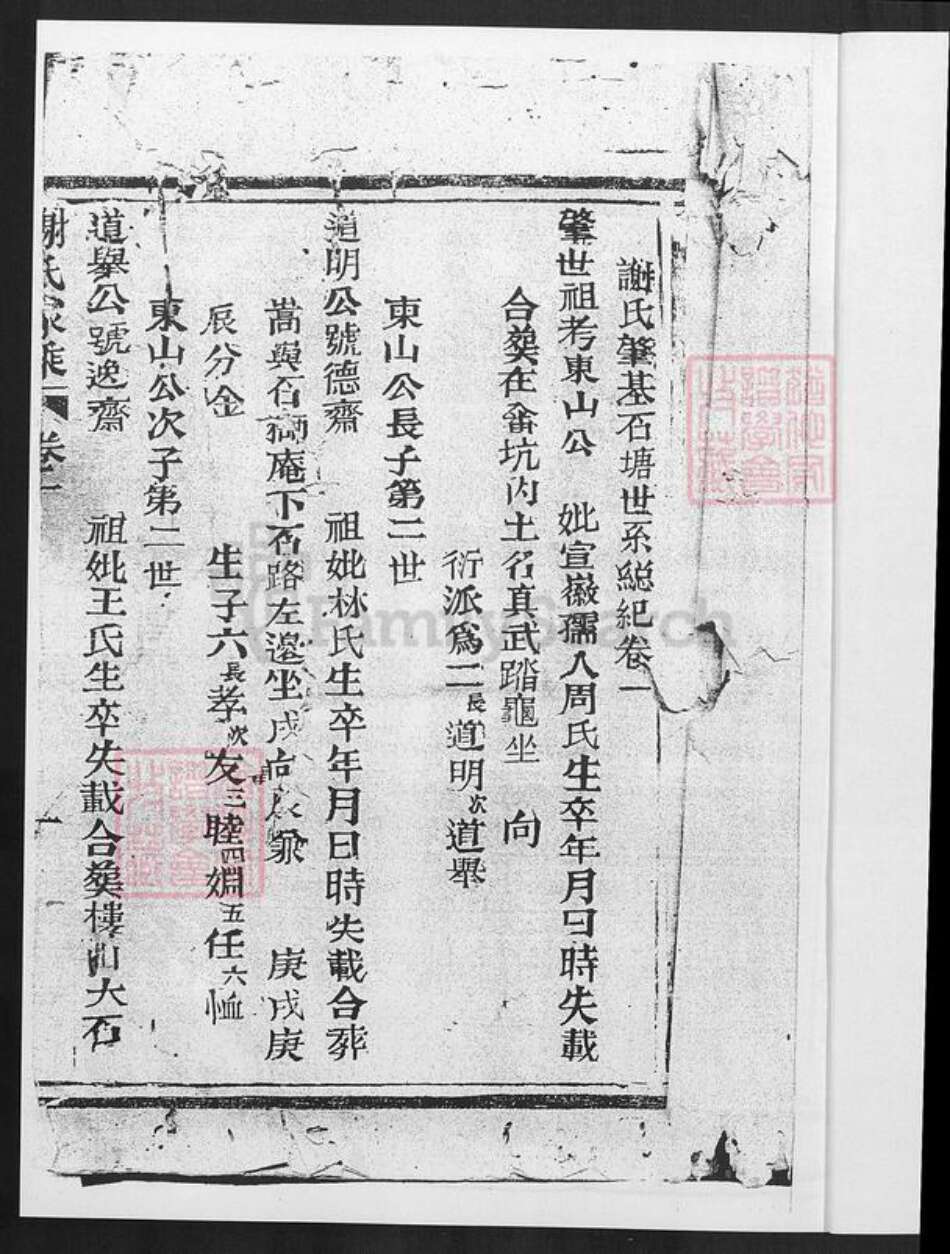 謝氏肇基石塘世系緫紀卷一
肇世祖考東山公 妣宣徽孺人周氏生卒年月日時失載
合𦵏在畨坑内土名真武踏龜坐 向
衍派為二長道明次道舉
東山公長子第二世
道明公號德齋 祖妣林氏生卒年月日時失載合葬
嵩與石獅庵下石路左邊坐戌 庚戌庚
辰分金 生子六長孝次友三睦四婣五任六恤
東山公次子第二世
道舉公號逸齋 祖妣王氏生卒失載合𦵏樓山大石
謝氏家乘 卷一
FamilySearch